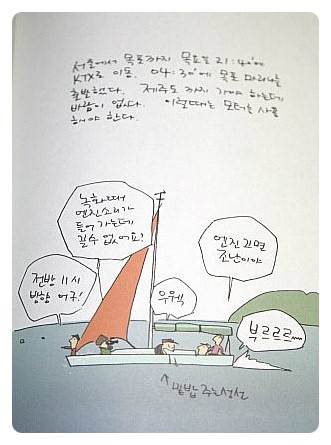 서울에서 목포까지 목요일 21:40에
KTX로 이동. 04:30에 목포 마리나를
출발했다. 제주도까지 가야 하는데
바람이 없다. 이럴때는 모터를 사용
해야 한다.
녹화때
엔진소리가
들어가는데
낄수 없어요!
엔진 끄면
조난이야
전방 11시
방향 어구!
우웩
부르르르~
밑밥 주는 성선